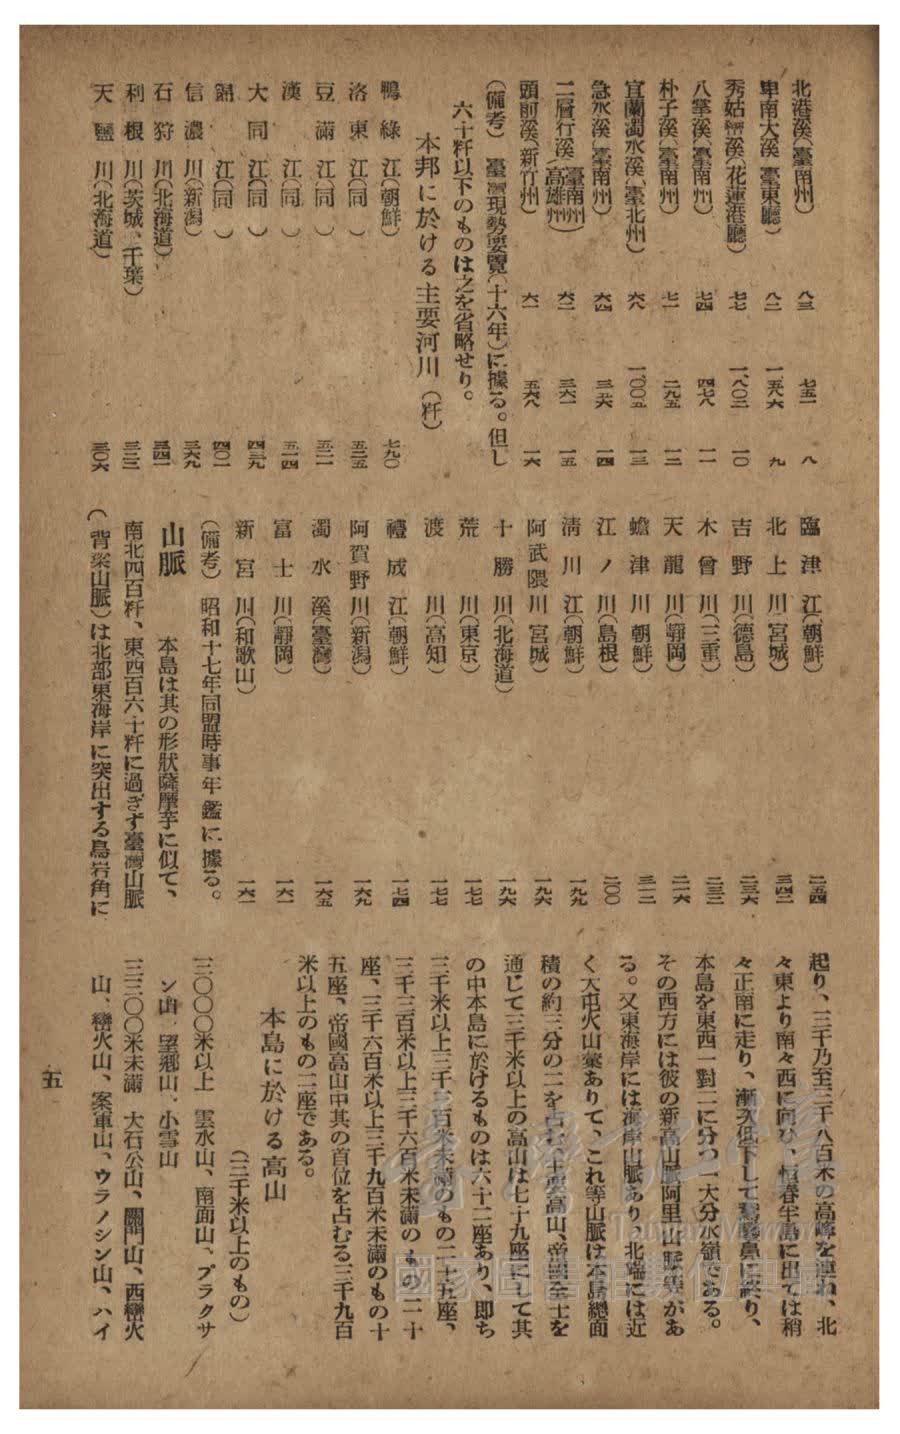 北港溪(臺南州) 八三 七五一 八
卑南大溪(臺東廳) 八二 一、五八六 九
秀姑巒溪(花蓮港廳) 七七 一、八〇三 一〇
八掌溪(臺南州) 七四 四七八 一一
朴子溪(臺南州) 七一 二九五 一二
宜蘭濁水溪(臺北州) 六八 一、〇〇五 一三
急水溪(臺南州) 六四 三一六 一四
二層行溪(臺南州 高雄州) 六二 三六一 一五
頭前溪(新竹州) 六一 五六八 一六
(備考) 臺灣現勢要覽(十六年)に據る。但し
六十粁以下のものは之を省略せり。
本邦に於ける主要河川(粁)
鴨綠江(朝鮮) 七九〇
洛東江(同) 五二五
豆滿江(同) 五二一
漢江(同) 五一四
大同江(同) 四三九
錦江(同) 四〇一
信濃川(新潟) 三六九
石狩川(北海道) 三四二
利根川(茨城、千葉) 三二二
天鹽川(北海道) 三〇六
臨津江(朝鮮) 二五四
北上川(宮城) 二四二
吉野川(德島) 二三六
木曾川(三重) 二三二
天龍川(靜岡) 二一六
蟾津川(朝鮮) 二一二
江ノ川(島根) 二〇〇
淸川江(朝鮮) 一九九
阿武隈川(宮城) 一九六
十勝川(北海道) 一九六
荒川(東京) 一七七
渡川(高知) 一七七
禮成江(朝鮮) 一七四
阿賀野川(新潟) 一六九
濁水溪(臺灣) 一六五
富士川(靜岡) 一六一
新宮川(和歌山) 一六一
(備考) 昭和十七年同盟時事年鑑に據る。
山脈 本島は其の形狀薩摩芋に似て、
南北四百粁、東西百六十粁に過ぎず臺灣山脈
(背梁山脈)は北部東海岸に突出する烏岩角に
起り、三千乃至三千八百米の高峰を連ね、北
々東より南々西に向ひ、恒春半島に出ては稍
々正南に走り、漸次低下して鵞鑾鼻に終り、
本島を東西一對二に分つ一大分水嶺である。
その西方には彼の新高山脈阿里山山脈等があ
る。又東海岸には海岸山脈あり、北端には近
く大屯火山彙ありて、これ等山脈は本島總面
積の約三分の二を占む、主要高山、帝國全土を
通じて三千米以上の高山は七十九座にして其
の中本島に於けるものは六十二座あり、即ち
三千米以上三千三百米未滿のもの二十五座、
三千三百米以上三千六百米未滿のもの二十
座、三千六百米以上三千九百米未滿のもの十
五座、帝國高山中其の首位を占むる三千九百
米以上のもの二座である。
本島に於ける高山
(三千米以上のもの)
三〇〇〇米以上 雲水山、南面山、ブラクサ
ン山、望鄕山、小雪山
三三〇〇米未滿 大石公山、關門山、西巒火
山、巒火山、案軍山、ウラノシン山、ハイ
五
國家圖書館數位典藏